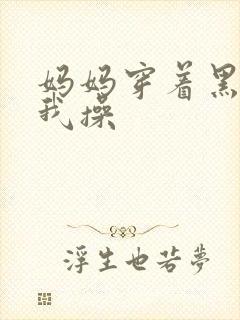 妈妈穿着黑
我操
浮生也若梦